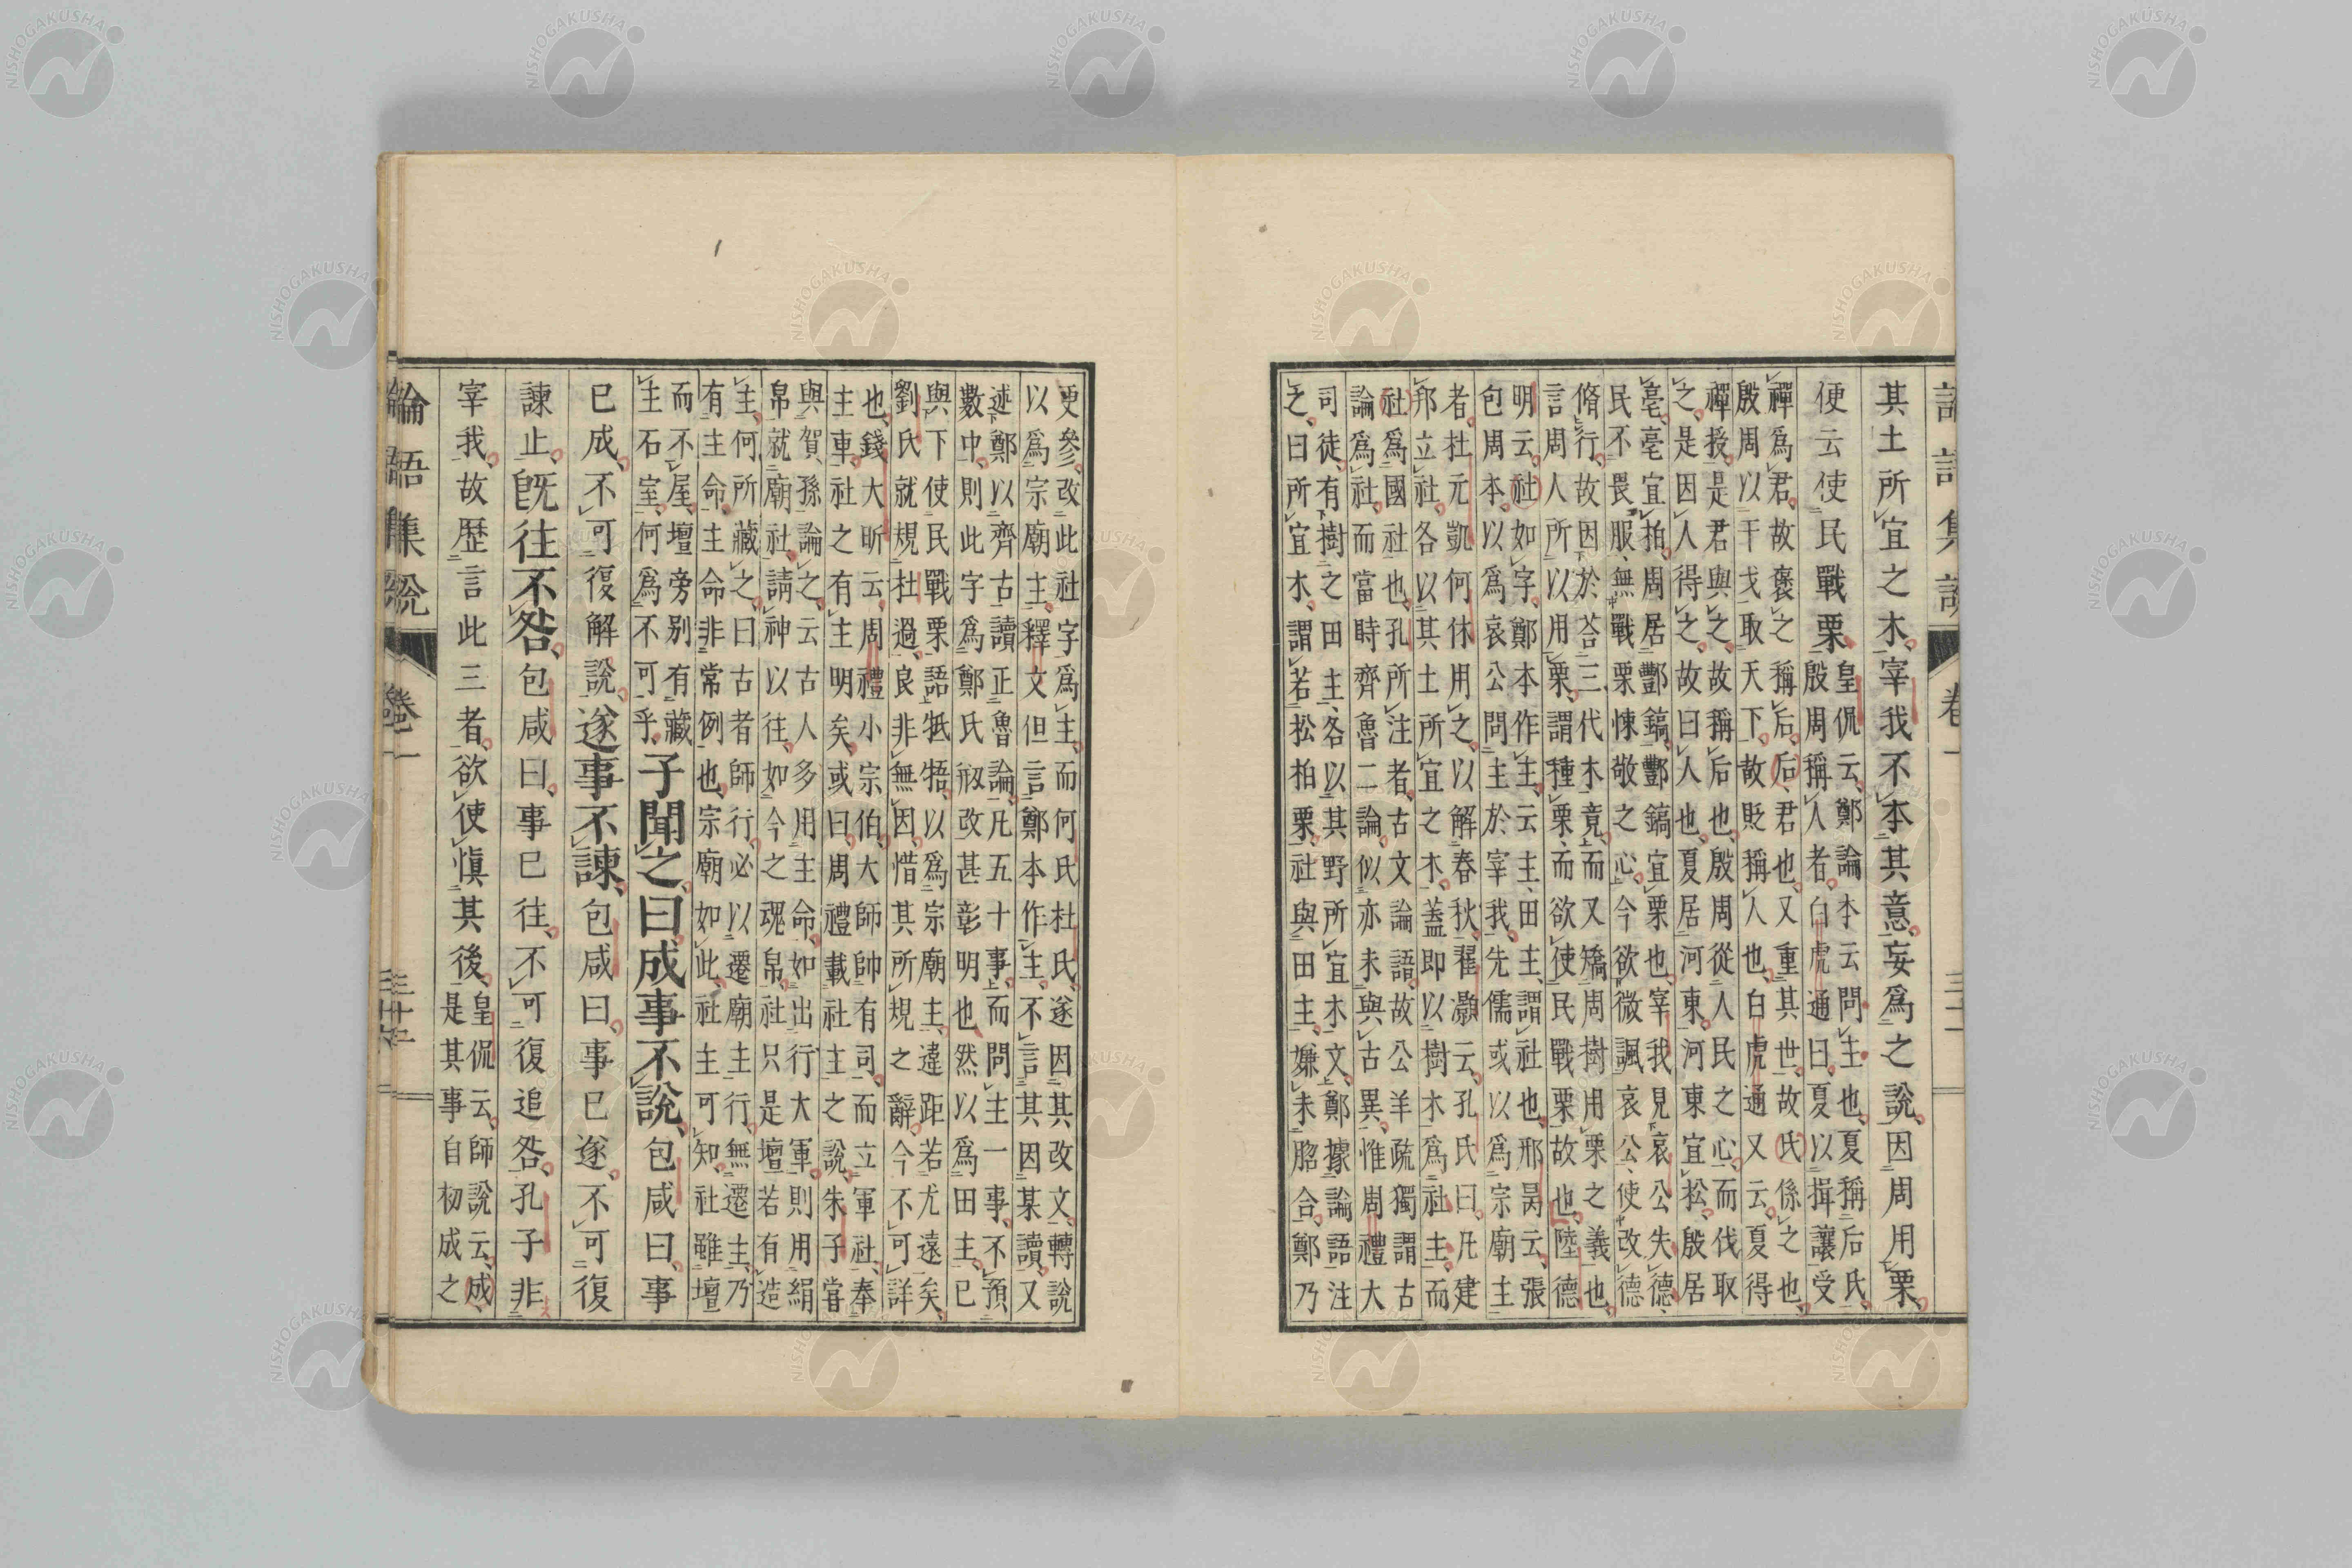 其土所宜之木宰我不本其意妄爲之說因周用栗
便云使民戰栗
皇侃云鄭論本云問主也夏稱后氏
殷周稱人者白虎通曰夏以揖讓受
禪爲君故褒之稱后后君也又重其世故氏係之也
殷周以干戈取天下故貶稱人也白虎通又云夏得
禪授是君與之故稱后也殷周從人民之心而伐取
之是因人得之故曰人也夏居河東河東宜松殷居
亳亳宜柏周居酆鎬酆鎬宜栗也宰我見哀公失德
民不畏服無戰栗悚敬之心今欲微諷哀公使改德
脩行故因於荅三代木竟而又矯周樹用栗之義也
言周人所以用栗謂種栗而欲使民戰栗故也陸德
明云社如字鄭本作主云主田主謂社也邢昺云張
包周本以爲哀公問主於宰我先儒或以爲宗廟主
者杜元凱何休用之以解春秋翟灝云孔氏曰凡建
邦立社各以其土所宜之木蓋即以樹木爲社主而
社爲國社也孔所注者古文論語故公羊疏獨謂古
論爲社而當時齊魯二論似亦未與古異惟周禮大
司徒有樹之田主各以其野所宜木文鄭據論語注
之曰所宜木謂若松柏栗社與田主嫌未脗合鄭乃
更參改此社字爲主而何氏杜氏遂因其改文轉說
以爲宗廟主釋文但言鄭本作主不言其因某讀又
述鄭以齊古讀正魯論凡五十事而問主一事不預
數中則此字爲鄭氏刱改甚彰明也然以爲田主已
與下使民戰栗語牴牾以爲宗廟主違距若尤遠矣
劉氏就規杜過良非無因惜其所規之辭今不可詳
也錢大昕云周禮小宗伯大師帥有司而立軍社奉
主車社之有主明矣或曰周禮載社主之說朱子嘗
與賀孫論之云古人多用主命如出行大軍則用絹
帛就廟社請神以往如今之魂帛社只是壇若有造
主何所藏之曰古者師行必以遷廟主行無遷主乃
有主命主命非常例也宗廟如此社主可知社雖壇
而不屋壇旁別有藏
主石室何爲不可乎
子聞之曰成事不說包咸曰事
已成不可復解說遂事不諫包咸曰事已遂不可復
諫止既往不咎包咸曰事已往不可復追咎孔子非
宰我故歷言此三者欲使愼其後
皇侃云師說云成
是其事自初成之
論語集說 卷二